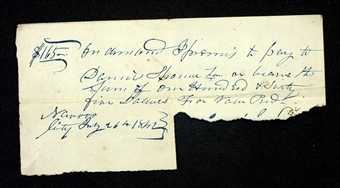 $165.00 On demand I promis to pay to
Daniel or bearer the
Sum of one Hundred & Sixty
five Dollars For Value Recd
City July 26th 1842